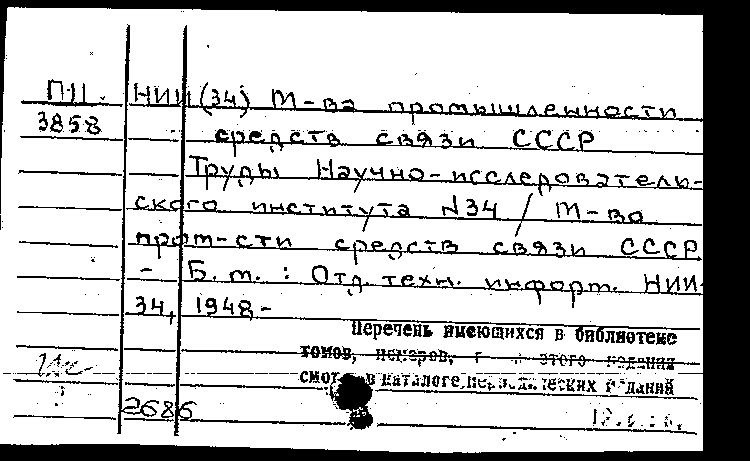 П-11. НИИ (34) М-ва промышленности
3858 средств связи СССР
Труды Научно-исследователь-
ского института N34 / М-во
пром-сти средств связи СССР
- Б.м. : Отд. техн. информ. НИИ-
34, 1948-
Перечень имеющихся в библиотеке
томов, номеров, этого издания
в каталоге периодических изданий
2686